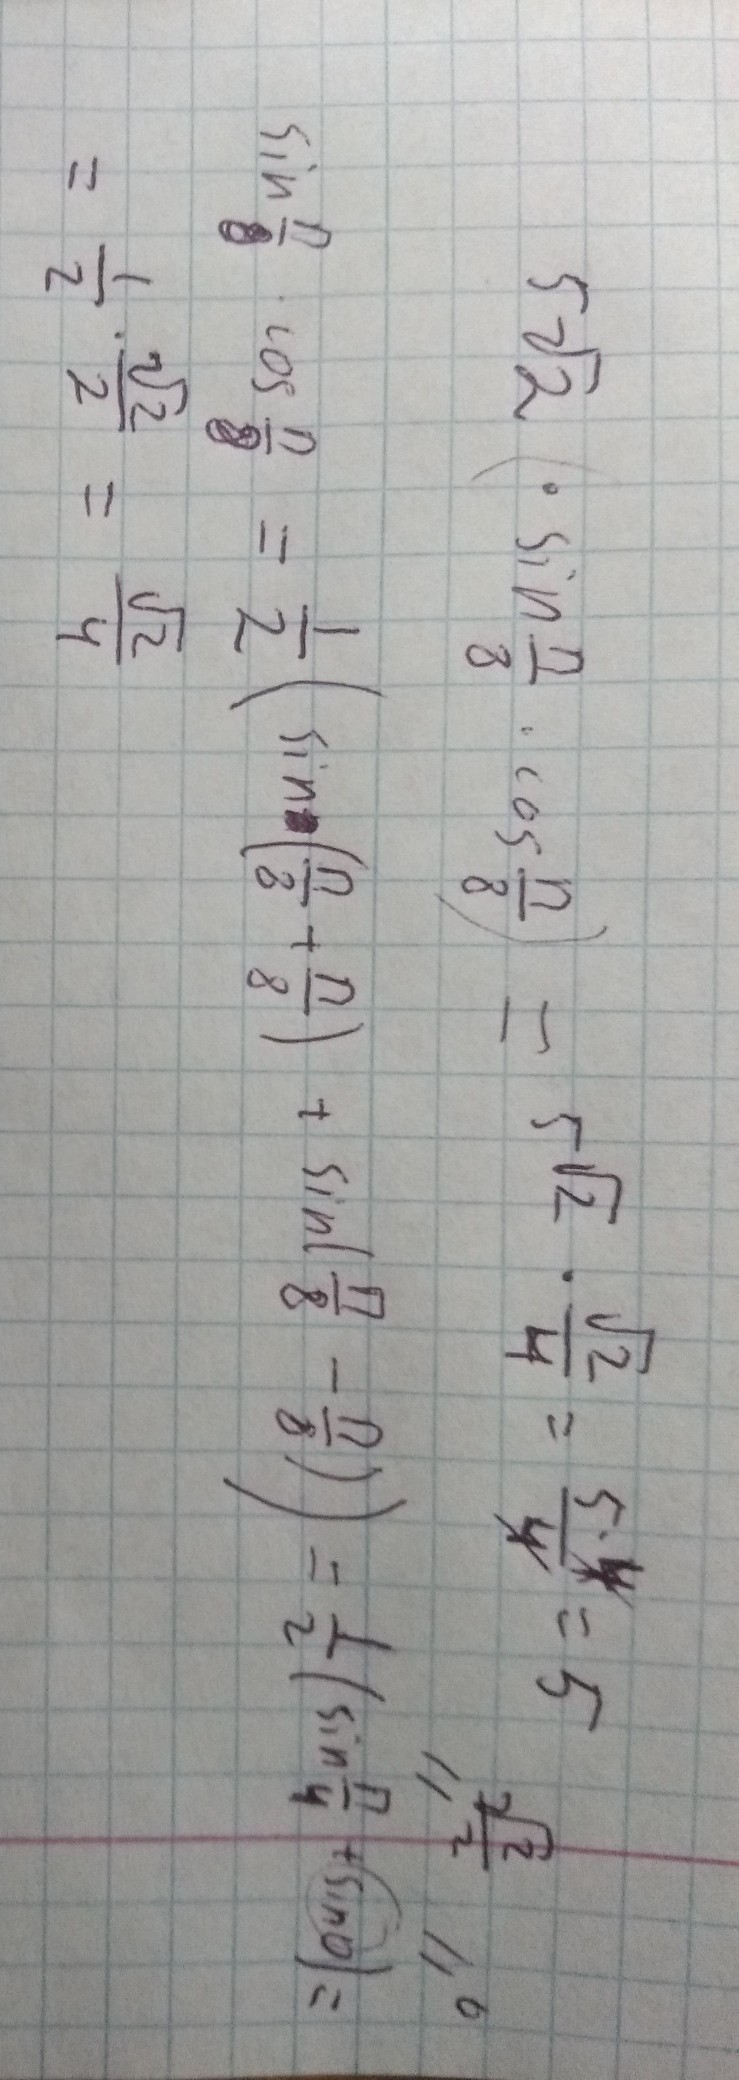 5√2 (· sin π/8 · cos π/8) = 5√2 · √2/4 = 5·4/4 = 5
√2/2 0
sin π/8 · cos π/8 = 1/2 (sin (π/8 + π/8) + sin(π/8 - π/8)) = 1/2 (sin π/4 + sin 0) =
= 1/2 · √2/2 = √2/4